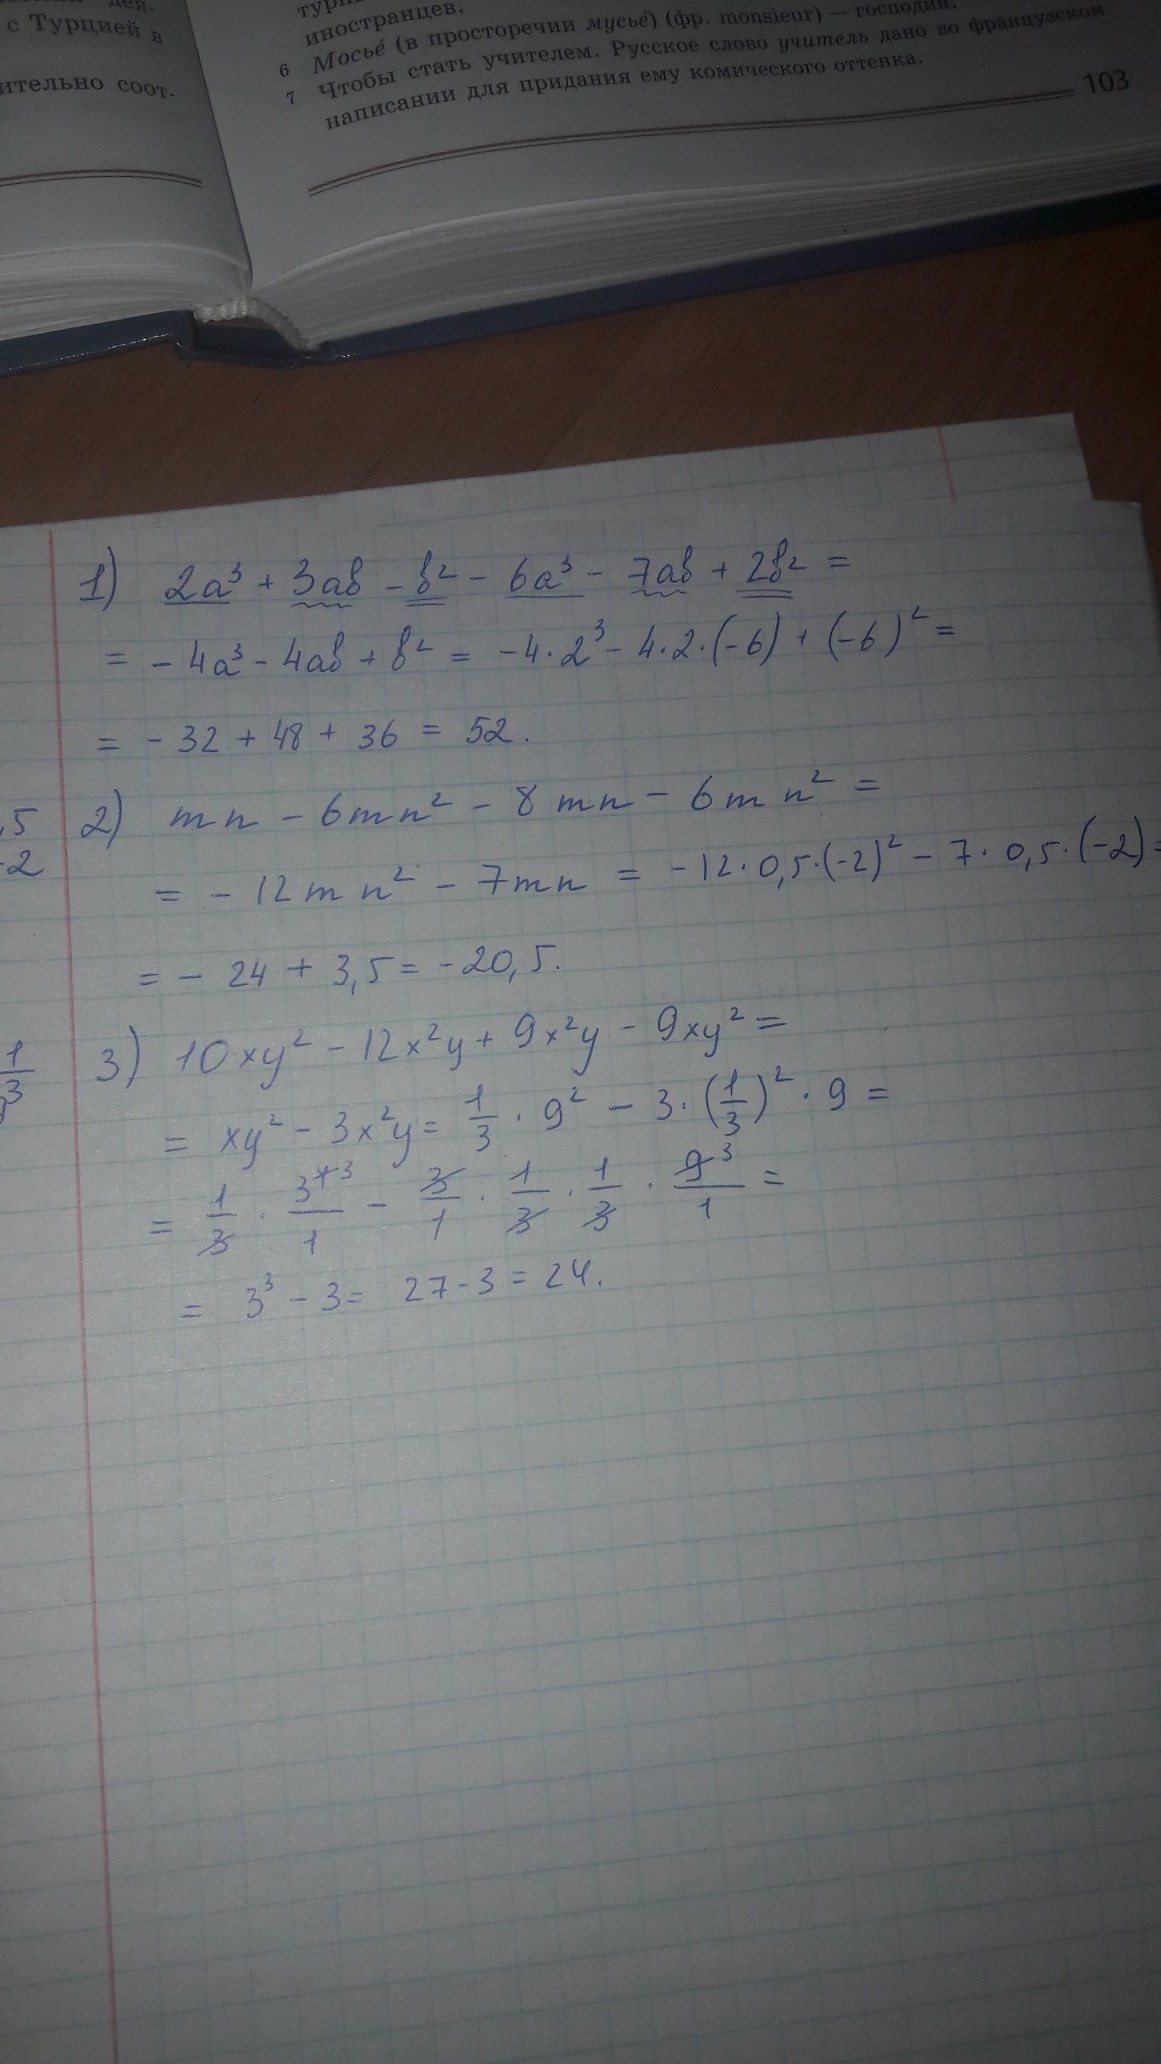 дея-
с Турцией в
ительно соот-
иностранцев.
6 Мосье́ (в просторечии мусье́) (фр. monsieur) — господин.
7 Чтобы стать учителем. Русское слово учитель дано во французском
написании для придания ему комического оттенка.
103
1) 2a³ + 3ab - b² - 6a³ - 7ab + 2b² =
= - 4a³ - 4ab + b² = -4·2³ - 4·2·(-6) + (-6)² =
= - 32 + 48 + 36 = 52.
,5
-2
2) mn - 6mn² - 8mn - 6mn² =
= - 12mn² - 7mn = -12·0,5·(-2)² - 7·0,5·(-2) =
= - 24 + 3,5 = -20,5.
1/3
3) 10xy² - 12x²y + 9x²y - 9xy² =
= xy² - 3x²y = 1/3 · 9² - 3·(1/3)² · 9 =
= 1/3 · 3⁴ ³/1 - 3/1 · 1/3 · 1/3 · 9 ³/1 =
= 3³ - 3 = 27 - 3 = 24.